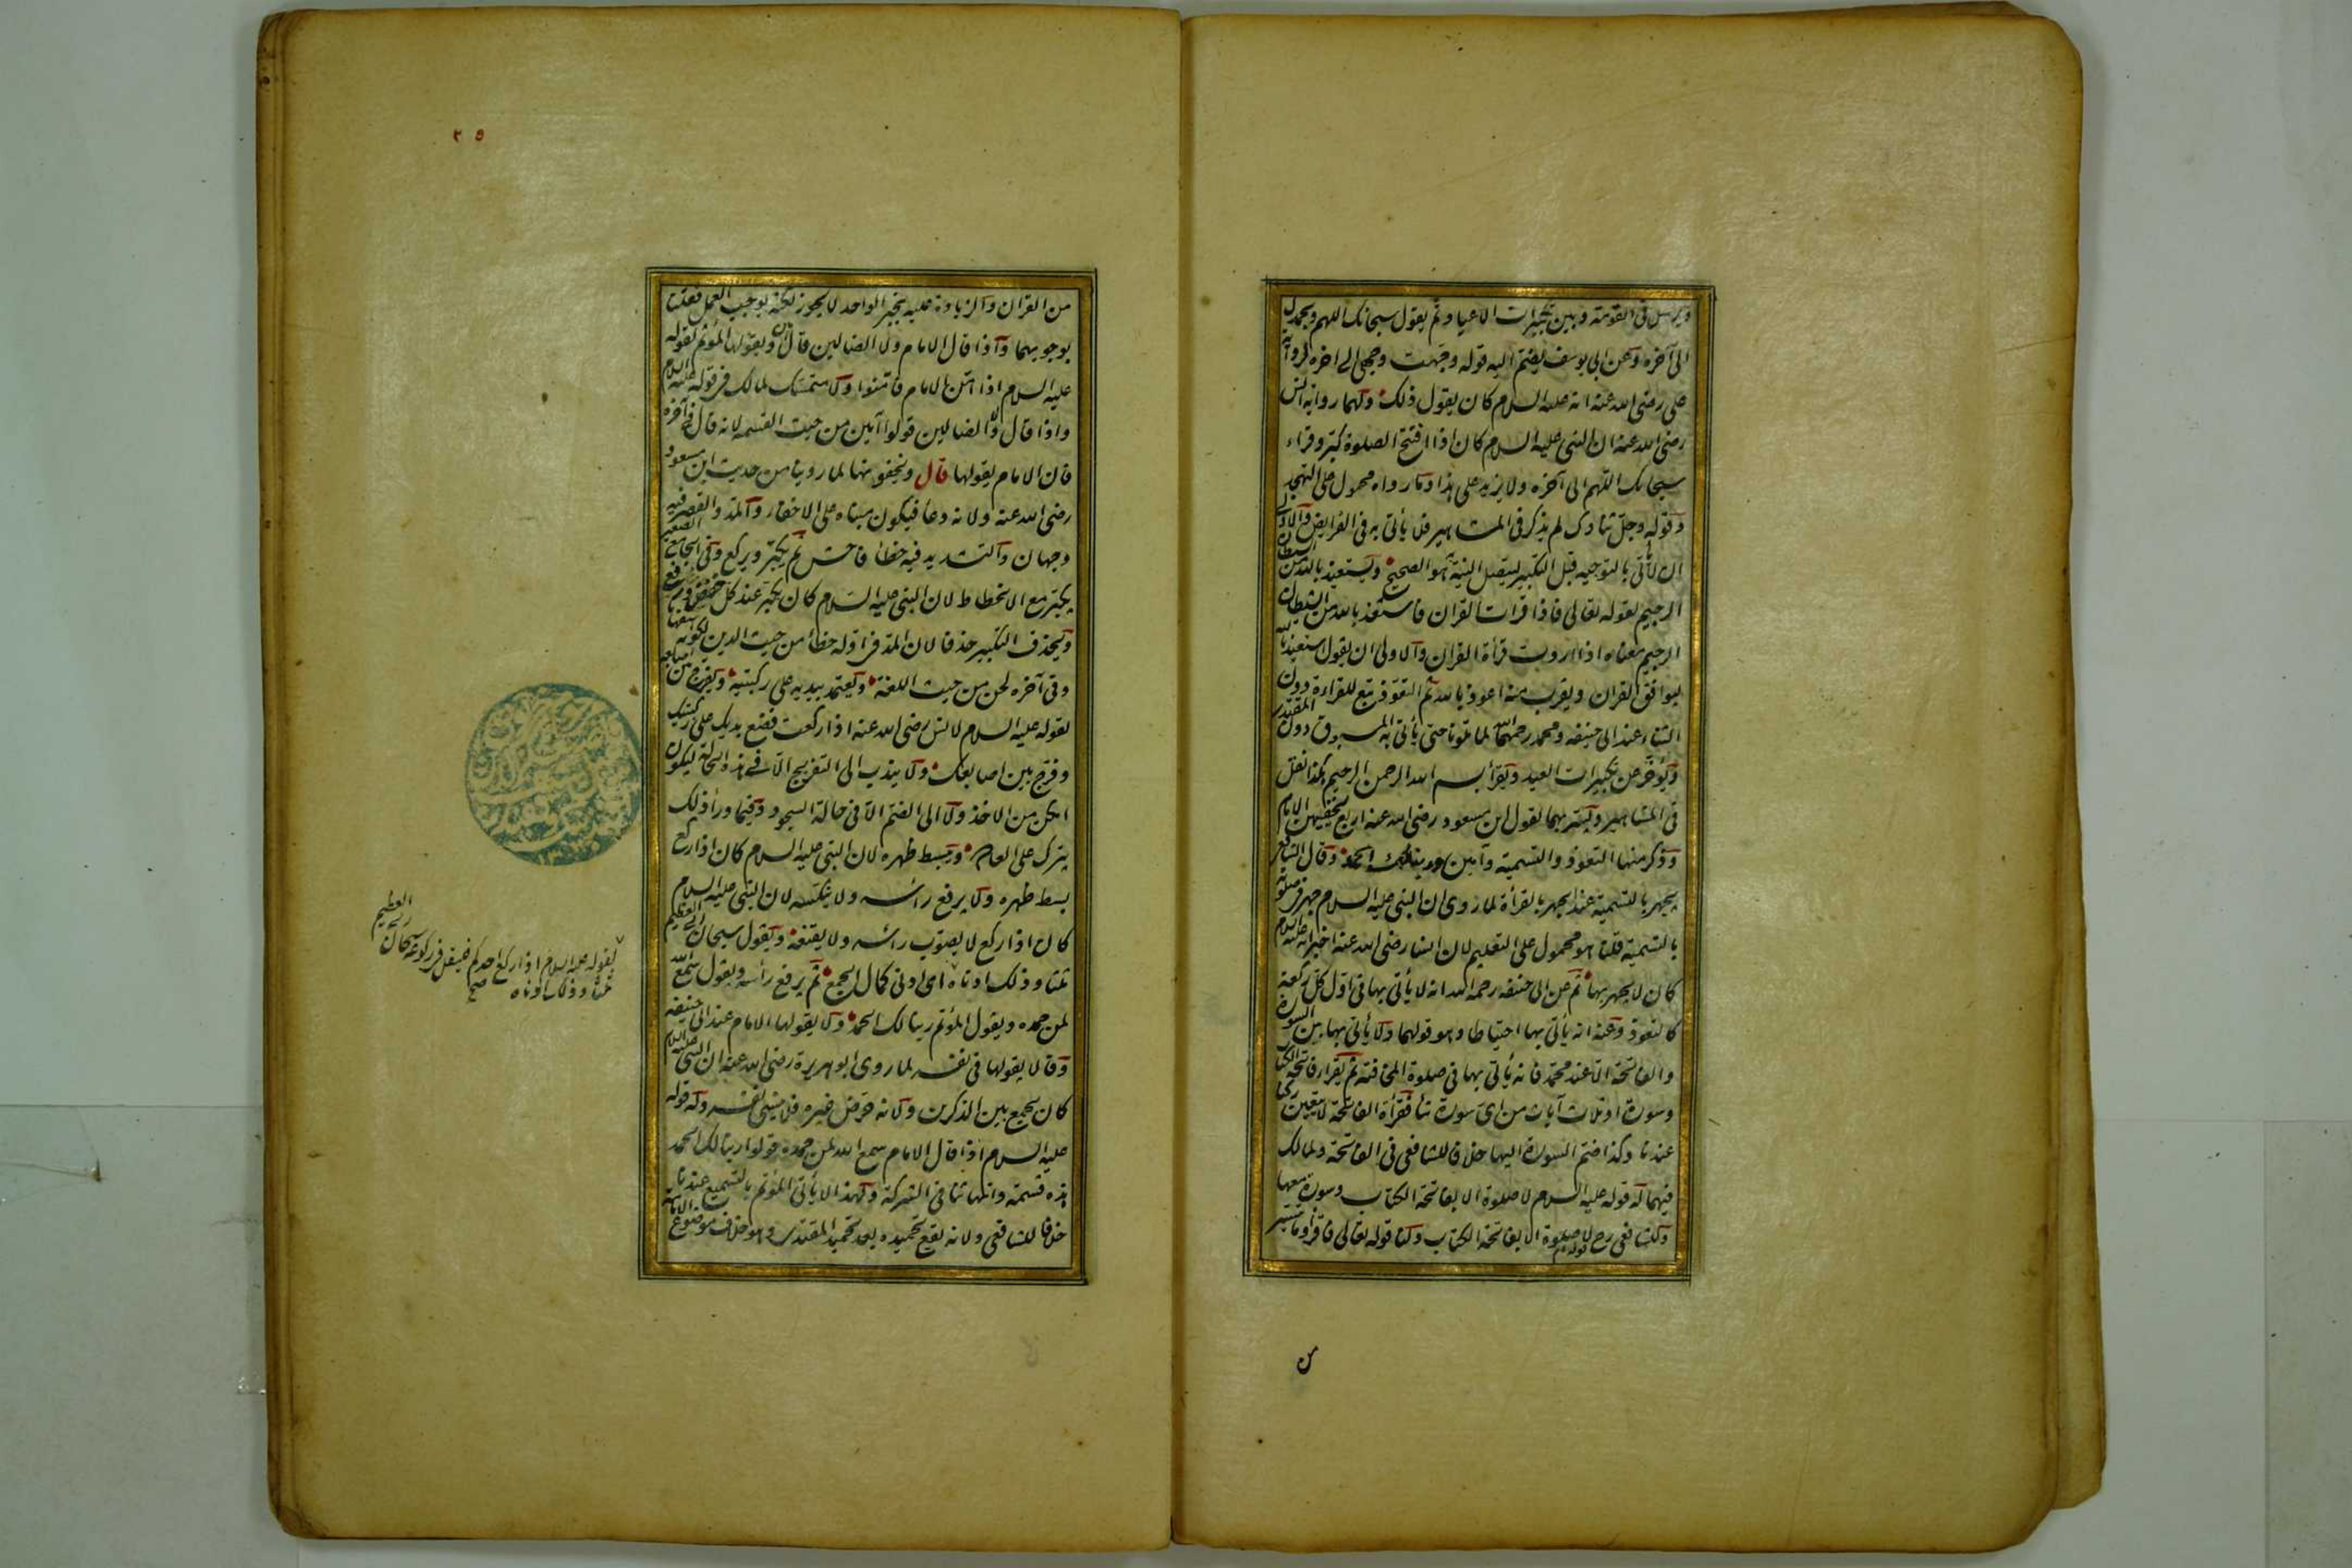 ويرسل في القومة وبين تكبيرات الاعياد ثم يقول سبحانك اللهم وبحمدك
الى آخره وعن ابي يوسف يضم اليه قوله وجهت وجهي الى اخره لرواية
علي رضي الله عنه انه عليه السلام كان يقول ذلك ولهما رواية انس
رضي الله عنه ان النبي عليه السلام كان اذا افتتح الصلوة كبر وقراء
سبحانك اللهم الى آخره ولا يزيد على هذا وما رواه محمول على التهجد
وقوله وجل ثناؤك لم يذكر في المشاهير فلا يأتي به في الفرايض والاولى
ان لا يأتي بالتوجيه قبل التكبير ليتصل النية به هو الصحيح ويستعيذ بالله من الشيطان
الرجيم لقوله تعالى فاذا قرات القران فاستعذ بالله من الشيطان
الرجيم معناه اذا اردت قرأة القران والاولى ان يقول استعيذ بالله
ليوافق القران ويقرب منه اعوذ بالله ثم التعوذ تبع للقراءة دون
الثناء عند ابي حنيفه ومحمد رحمهما الله لما تلونا حتى يأتي به المسبوق دون المقتدي
ويؤخر عن تكبيرات العيد ويقرأ بسم الله الرحمن الرحيم هكذا نقل
في المشاهير ويسر بهما لقول ابن مسعود رضي الله عنه اربع يخفيهن الامام
وذكر منها التعوذ والتسمية وآمين وربنا لك الحمد وقال الشافعي
يجهر بالتسمية عند الجهر بالقرأة لما روى ان النبي عليه السلام جهر في صلوته
بالتسمية قلنا هو محمول على التعليم لان انسا رضي الله عنه اخبر انه عليه السلام
كان لا يجهر بها ثم عن ابي حنيفه رحمه الله انه لا يأتي بها في اول كل ركعة
كالتعوذ وعنه انه يأتي بها احتياطا وهو قولهما ولا يأتي بها بين السورة
والفاتحة الا عند محمد فانه يأتي بها في صلوة المخافتة ثم يقراء فاتحة الكتاب
وسورة او ثلاث آيات من اي سورة شأ فقرأة الفاتحة لا تتعين ركنا
عندنا وكذا ضم السورة اليها خلافا للشافعي في الفاتحة ولمالك
فيهما له قوله عليه السلام لا صلوة الا بفاتحة الكتاب وسورة معها
وللشافعي رح قوله عم لا صلوة الا بفاتحة الكتاب ولنا قوله تعالى فاقرأوا ما تيسر
من
٢٥
من القران والزيادة عليه بخبر الواحد لا يجوز لكنه يوجب العمل فقلنا
بوجوبهما واذا قال الامام ولا الضالين قال آمين ويقولها المؤتم لقوله
عليه السلام اذا امن الامام فامنوا ولا متمسك لمالك في قوله عليه السلام
واذا قال ولا الضالين قولوا آمين من حيث القسمه لانه قال في آخره
فان الامام يقولها قال ويخفونها لما روينا من حديث ابن مسعود
رضي الله عنه ولانه دعأ فيكون مبناه على الاخفاء والمد والقصر فيه
وجهان والتشديد فيه خطأ فاحش ثم يكبر ويركع وفي الجامع الصغير
يكبر مع الانحطاط لان النبي عليه السلام كان يكبر عند كل خفض ورفع
ويحذف التكبير حذفا لان المد في اوله خطأ من حيث الدين لكونه استفهاما
وفي آخره لحن من حيث اللغة ويعتمد بيديه على ركبتيه ويفرج بين اصابعه
لقوله عليه السلام لانس رضي الله عنه اذا ركعت فضع يديك على ركبتيك
وفرج بين اصابعك ولا يندب الى التفريج الا في هذه الحالة ليكون
امكن من الاخذ ولا الى الضم الا في حالة السجود وفيما ورأ ذلك
يترك على العادة ويبسط ظهره لان النبي عليه السلام كان اذا ركع
بسط ظهره ولا يرفع رأسه ولا ينكسه لان النبي عليه السلام
كان اذا ركع لا يصوب رأسه ولا يقنعه ويقول سبحان ربي العظيم
ثلثا وذلك ادناه اى ادنى كمال الجمع ثم يرفع رأسه ويقول سمع الله
لمن حمده ويقول المؤتم ربنا لك الحمد ولا يقولها الامام عند ابي حنيفه
وقالا يقولها في نفسه لما روى ابو هريرة رضي الله عنه ان النبي عليه السلام
كان يجمع بين الذكرين ولانه حرض غيره فلا ينسى نفسه وله قوله
عليه السلام اذا قال الامام سمع الله لمن حمده قولوا ربنا لك الحمد
هذه قسمة وانها تنافي الشركة ولهذا لا يأتي المؤتم بالتسميع عندنا
خلافا للشافعي ولانه يقع تحميده بعد تحميد المقتدي وهو خلاف موضوع الامامة
لقوله عليه السلام اذا ركع احدكم فليقل في ركوعه سبحان ربي العظيم
ثلثا وذلك ادناه صح